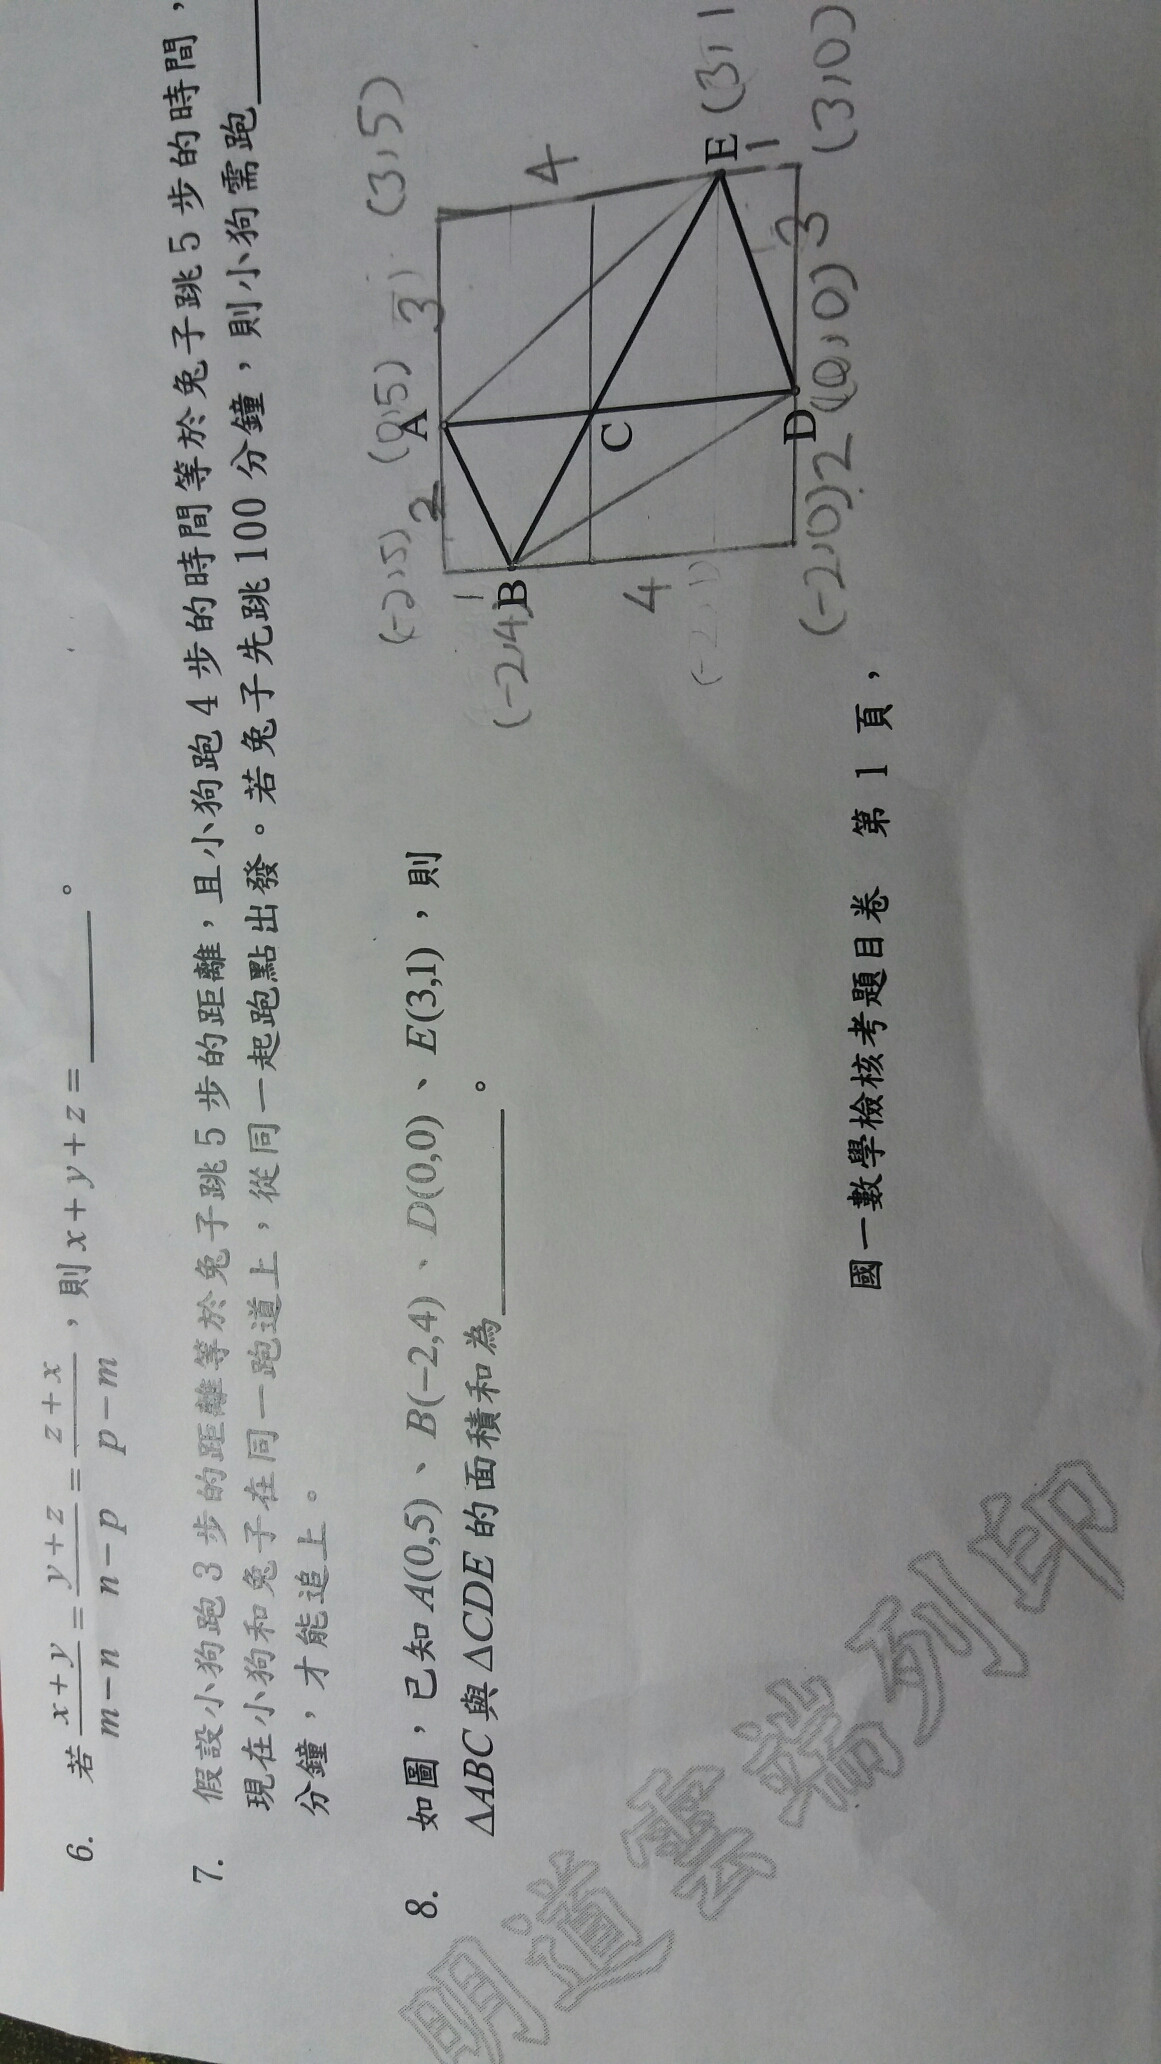 6. 若 \frac{x+y}{m-n} = \frac{y+z}{n-p} = \frac{z+x}{p-m}，則 x+y+z=______。
7. 假設小狗跑3步的距離等於兔子跳5步的距離，且小狗跑4步的時間等於兔子跳5步的時間，
現在小狗和兔子在同一跑道上，從同一起跑點出發。若兔子先跳100分鐘，則小狗需跑____
分鐘，才能追上。
8. 如圖，已知A(0,5)、B(−2,4)、D(0,0)、E(3,1)，則
ΔABC與ΔCDE的面積和為______。
(-2,5) (0,5) (3,5)
2 A 3
1 4
B
(-2,4)
C
4
(-2,1)
E (3,1
1
D
(-2,0) 2 (0,0) 3 (3,0)
國一數學檢核考題目卷 第 1 頁，
明道雲端列印